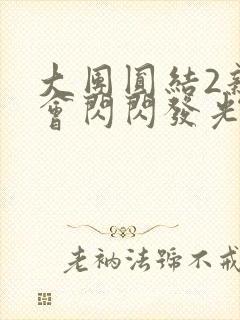 大團圓結2
會閃閃發光
老衲法號不戒